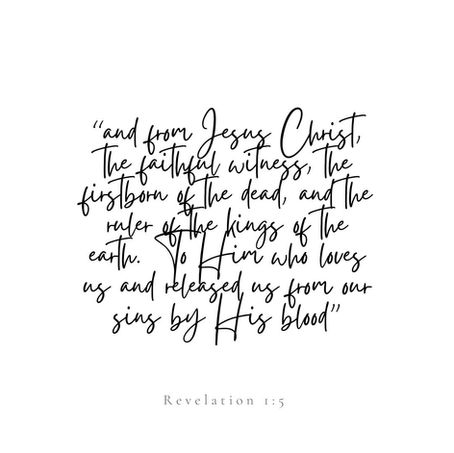 “and from Jesus Christ,
the faithful witness, the
firstborn of the dead, and the
ruler of the kings of the
earth. To Him who loves
us and released us from our
sins by His blood”
Revelation 1:5